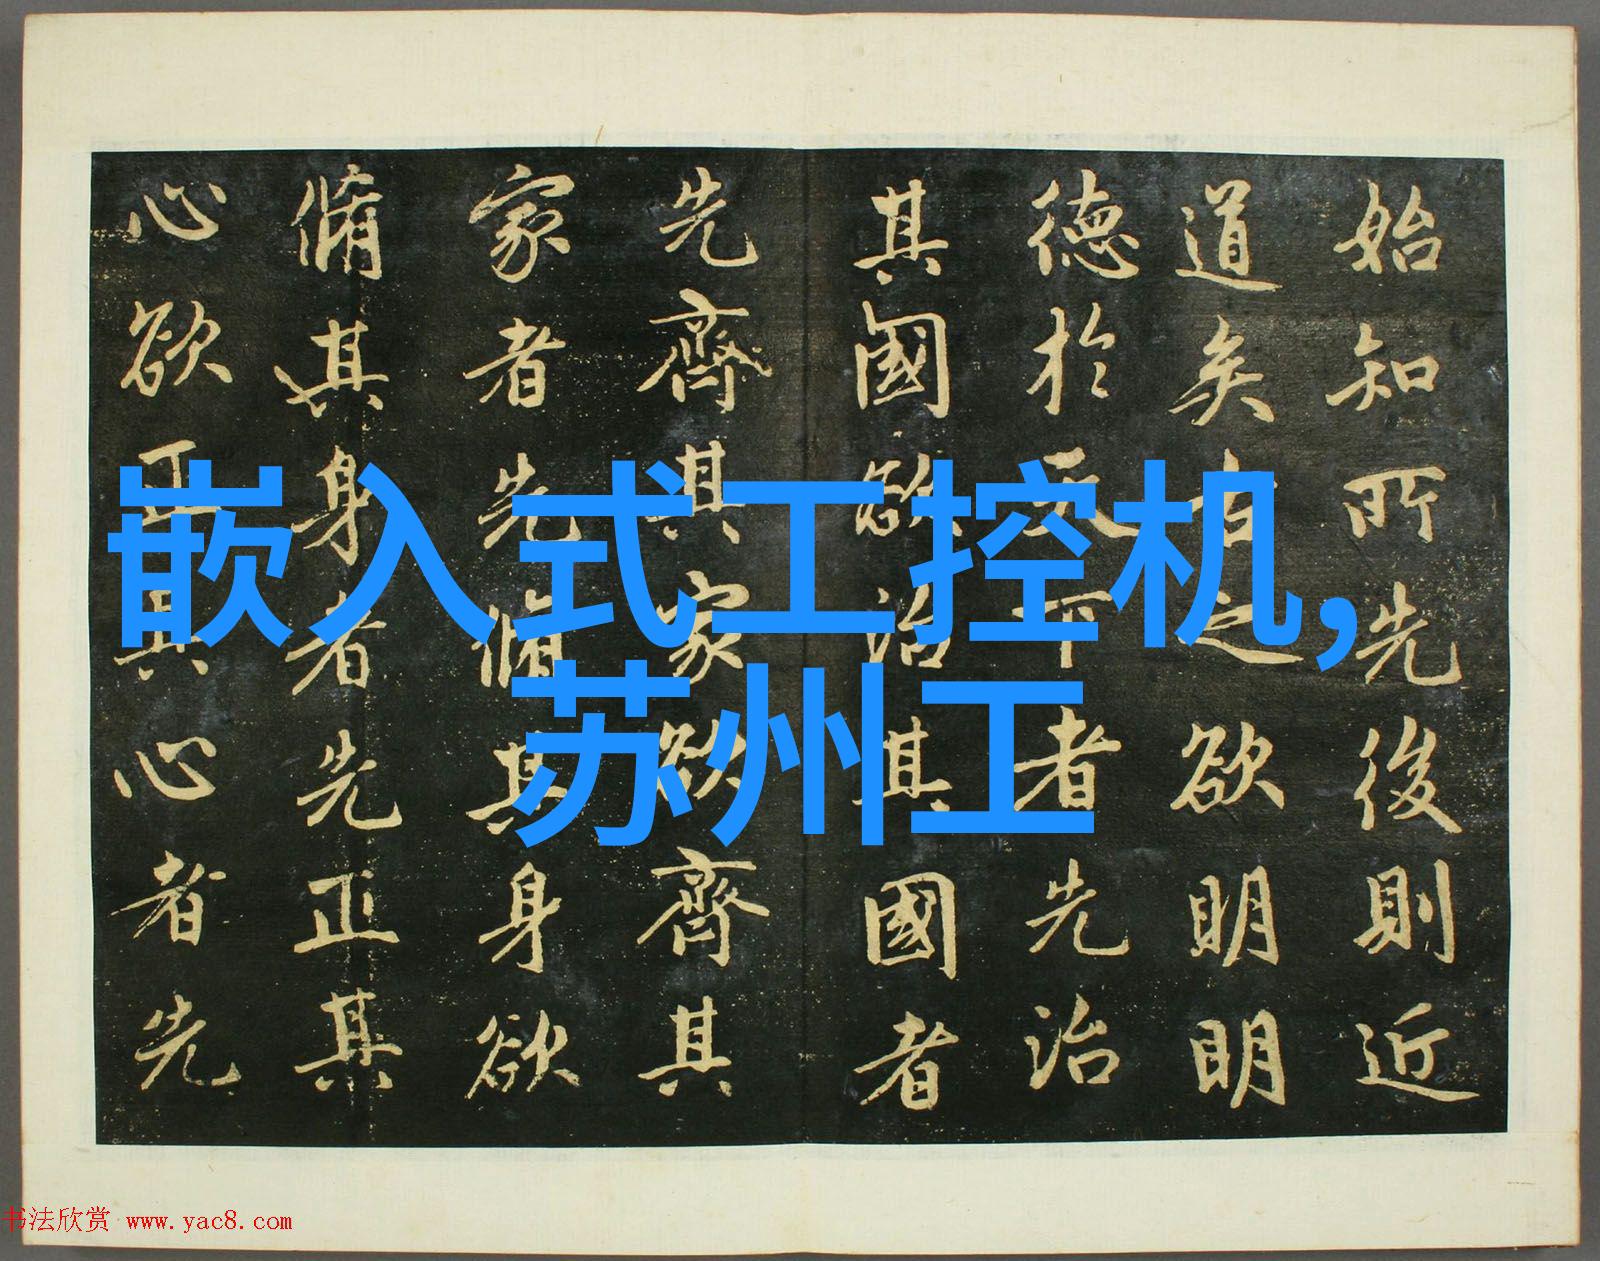 始知所先後則近
道矣古之欲明明
德於天下者先治
其國欲治其國者
先齊其家欲齊其
家者先脩其身欲
脩其身者先正其
心欲正其心者先
嵌入式工控机,
苏州工
书法欣赏 www.yac8.com